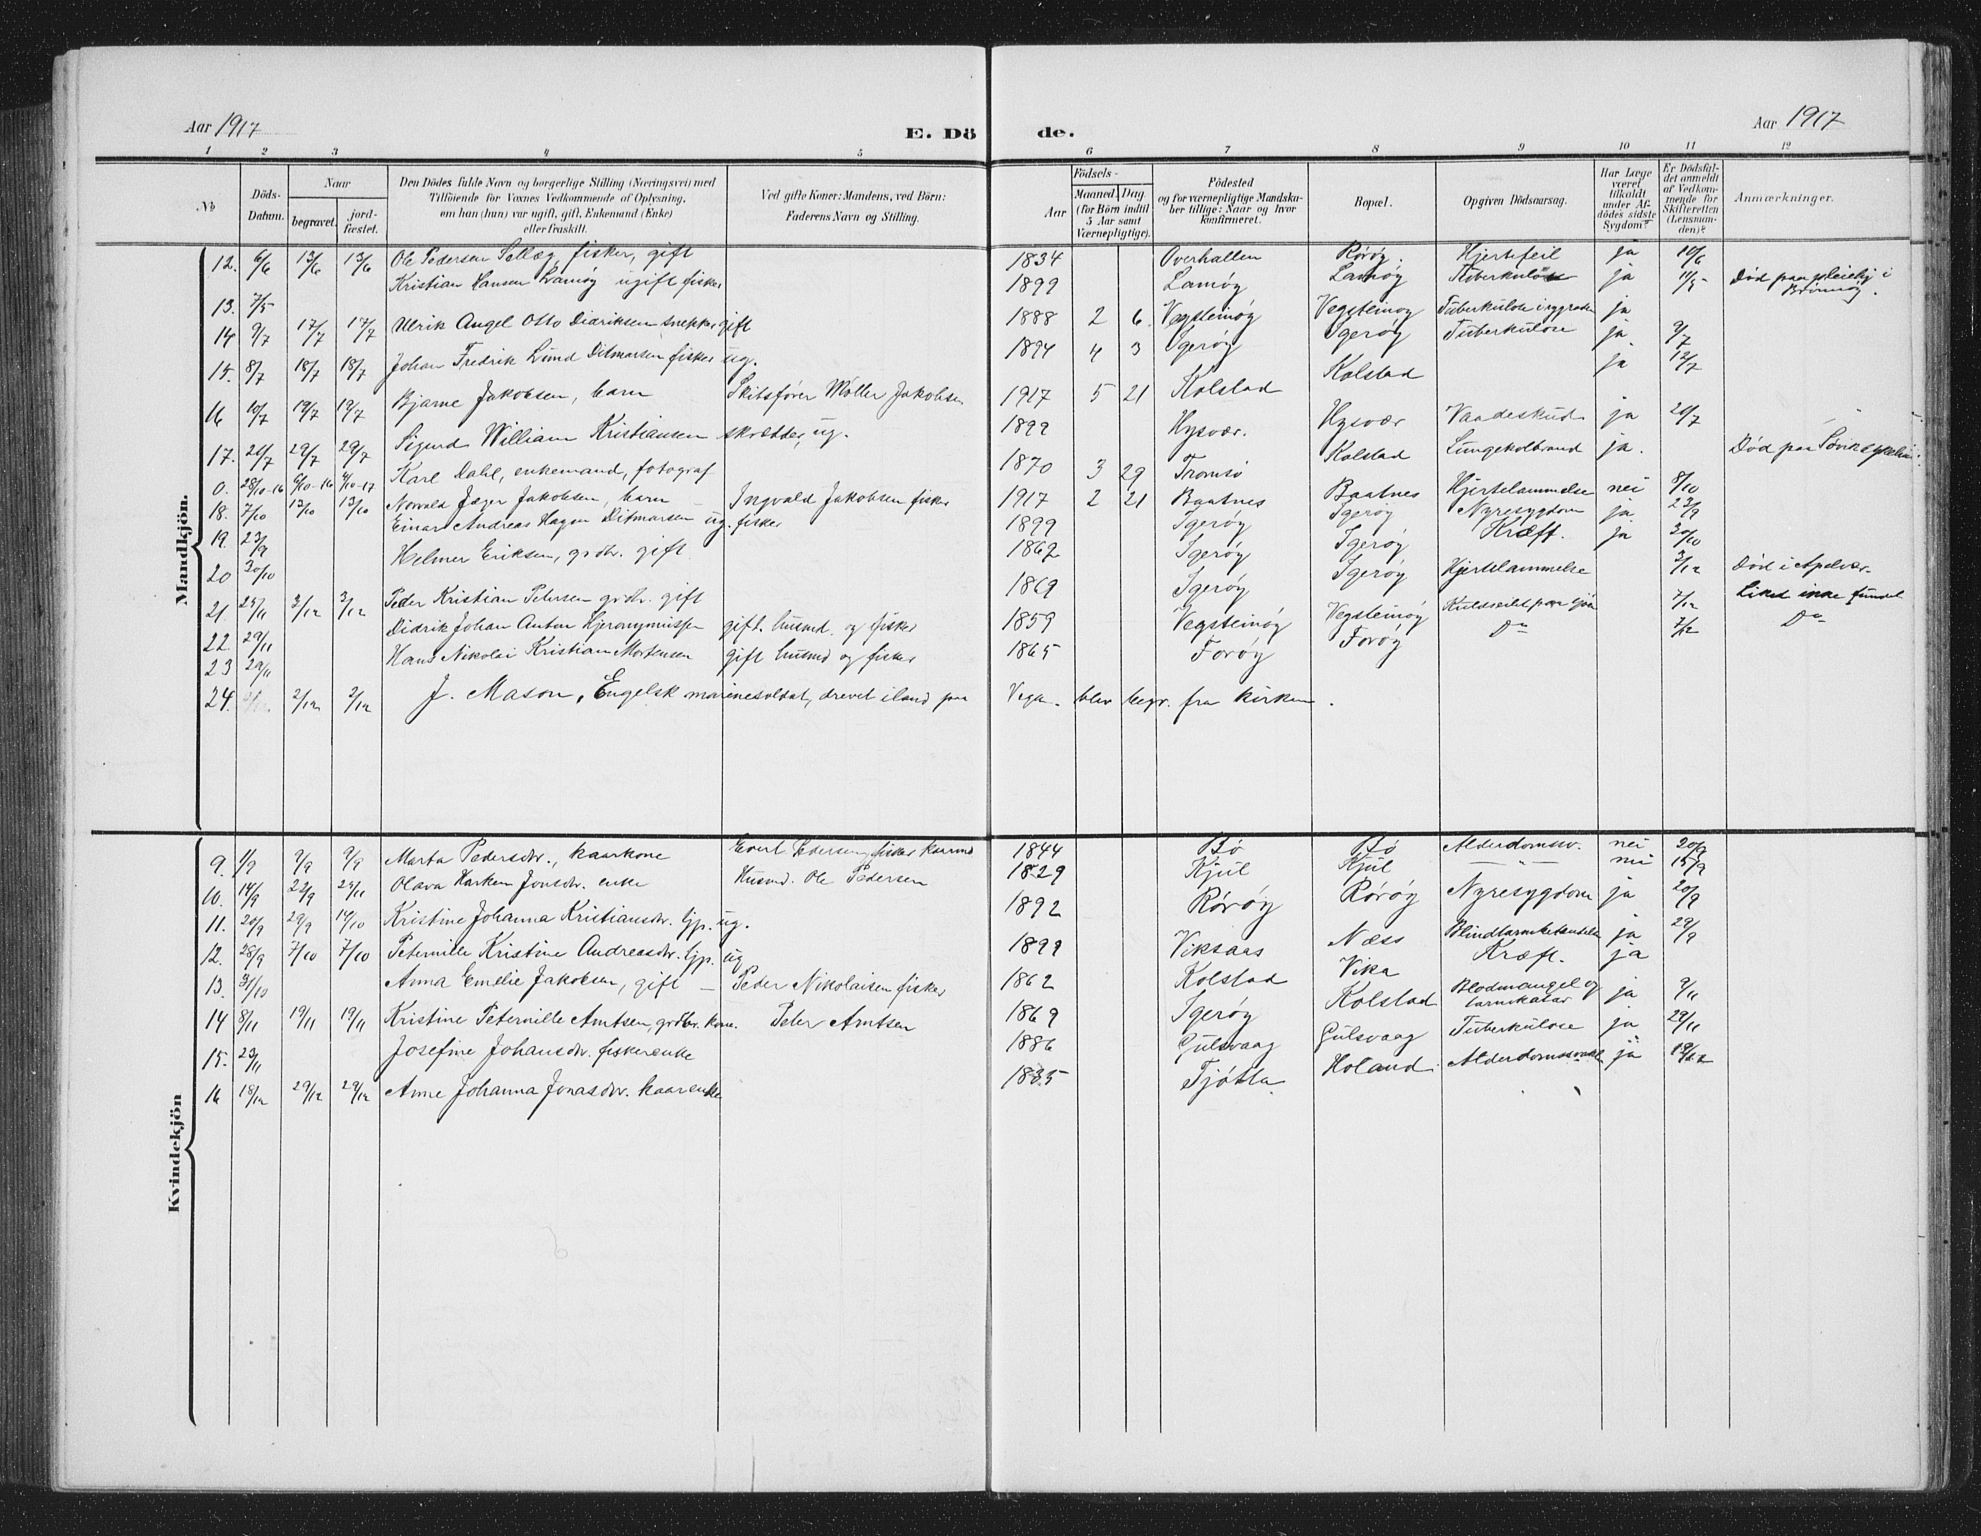 Aar 1917
E. Dö
de.
Aar 1917
1 2 3 4 5 6 7 8 9 10 11 12
No
Döds-Datum.
Naar
begravet.
jord-fæstet.
Den Dödes fulde Navn og borgerlige Stilling (Næringsvei) med Tilföiende for Voxnes Vedkommende af Oplysning, om han (hun) var ugift, gift, Enkemand (Enke) eller fraskilt.
Ved gifte Koner: Mandens, ved Börn: Faderens Navn og Stilling.
Födsels-
Aar
Maaned. Dag.
(for Börn indtil 5 Aar samt Værnepligtige).
Födested og for værnepligtige Mandskaber tillige: Naar og hvor konfirmeret.
Bopæl.
Opgiven Dödsaarsag.
Har Læge været tilkaldt under Afdödes sidste Sygdom?
Er Dödsfaldet anmeldt af Vedkommende for Skifteretten (Lensmanden)?
Anmærkninger.
Mandkjön.
12. 6/6 13/6 13/6 Ole Pedersen Sellæg, fisker, gift 1834 Overhallen Rörøy. Hjertefeil ja 10/6
13. 7/5 Kristian Hansen Lamöy ugift fisker 1899 Lamöy Lamöy Tuberkulose ja 11/5 Död paa pleiehj i Brönnöy.
14 9/7 17/7 17/7 Ulrik Angel Otto Didriksen snekker gift 1888 2 6 Vegsteinöy Vegsteinøy Tuberkulose i rygraden ja
15. 8/7 18/7 18/7 Johan Fredrik Lund Ditmarsen fisker ug. 1894 4 3 Igeröy Igeröy Tuberkulose ja. 9/7
16 10/7 19/7 19/7 Bjarne Jakobsen, barn Skibsfører Möller Jakobsen 1917 5 21 Kolstad Kolstad ja 12/7
17. 20/7 29/7 29/7 Sigurd William Kristiansen skrædder, ug. 1899 Hysvær. Hysvær Vaadeskud ja 20/7
0. 28/10-16 6/10-16 9/10-17 Karl Dahl, enkemand, fotograf 1870 3 29 Tromsö Kolstad Lungekolbrand ja. Död paa
18. 7/10 13/10 13/10 Norvald Jæger Jakobsen, barn Ingvald Jakobsen fisker 1917 2 21 Baatnes Baatnes Hjertelammelse nei 8/10
19. 23/9 Einar Andreas Hagen Ditmarsen ug. fisker 1899 Igeröy Igeröy Nyresygdom ja. 23/9
20 30/10 Helmer Eriksen, grdbr. gift 1862 Igeröy Igeröy Kræft. ja 30/10
21. 25/11 3/12 3/12 Peder Kristian Petersen grdbr. gift 1869 Igeröy Igeröy Hjertelammelse 3/12 Död i Apelvær
22. 29/11 Didrik Johan Anton Hjeronymussen gift. husmd. og fisker 1859 Vegsteinöy Vegsteinöy Kuldseilet paa sjøn 7/12 Liket ikke fundet
23 29/11 Hans Nikolai Kristian Mortensen gift husmd og fisker 1865 Foröy Foröy Do 7/12 Do
24. 2/12 2/12 J. Mason, Engelsk marinesoldat, drevet iland paa Vega. blev begr. fra kirken.
Kvindekjön
9. 1/9 9/9 9/9 Marta Pedersdtr., kaarkone Evert Pedersen, fisker kaarmd 1844 Bö Bö Alderdomssv. nei 20/9
10. 14/9 22/9 25/11 Olava Harken Jonsdtr. enke Husmd. Ole Pedersen 1829 Kjul Kjul — " — nei 15/9
11. 20/9 29/9 14/10 Kristine Johanna Kristiansdtr. tjp. ug. 1892 Röröy Röröy Nyresygdom ja 20/9
12. 28/9 7/10 7/10 Petermille Kristine Andreasdtr. tjp. ug 1899 Viksaas Næss Blindtarmbetændelse ja 29/9
13. 31/10 Anna Emelie Jakobsen, gift — Peder Nikolaisen fisker 1862 Kolstad Vika Kræft. ja
14 8/11 19/11 19/11 Kristine Petermille Arntsen, grdbr. kone. Peter Arntsen 1869 Igeröy Kolstad Blodmangel og tarmkatar ja 9/11
15. 23/11 Josefine Johansdtr. fiskerenke 1886 Gulsvaag Gulsvaag Tuberkulose ja 29/11
16 18/12 29/12 29/12 Anne Johanna Jonasdtr. kaarenke 1835 Tjötta. Holand. Alderdomssvakh ja 19/12